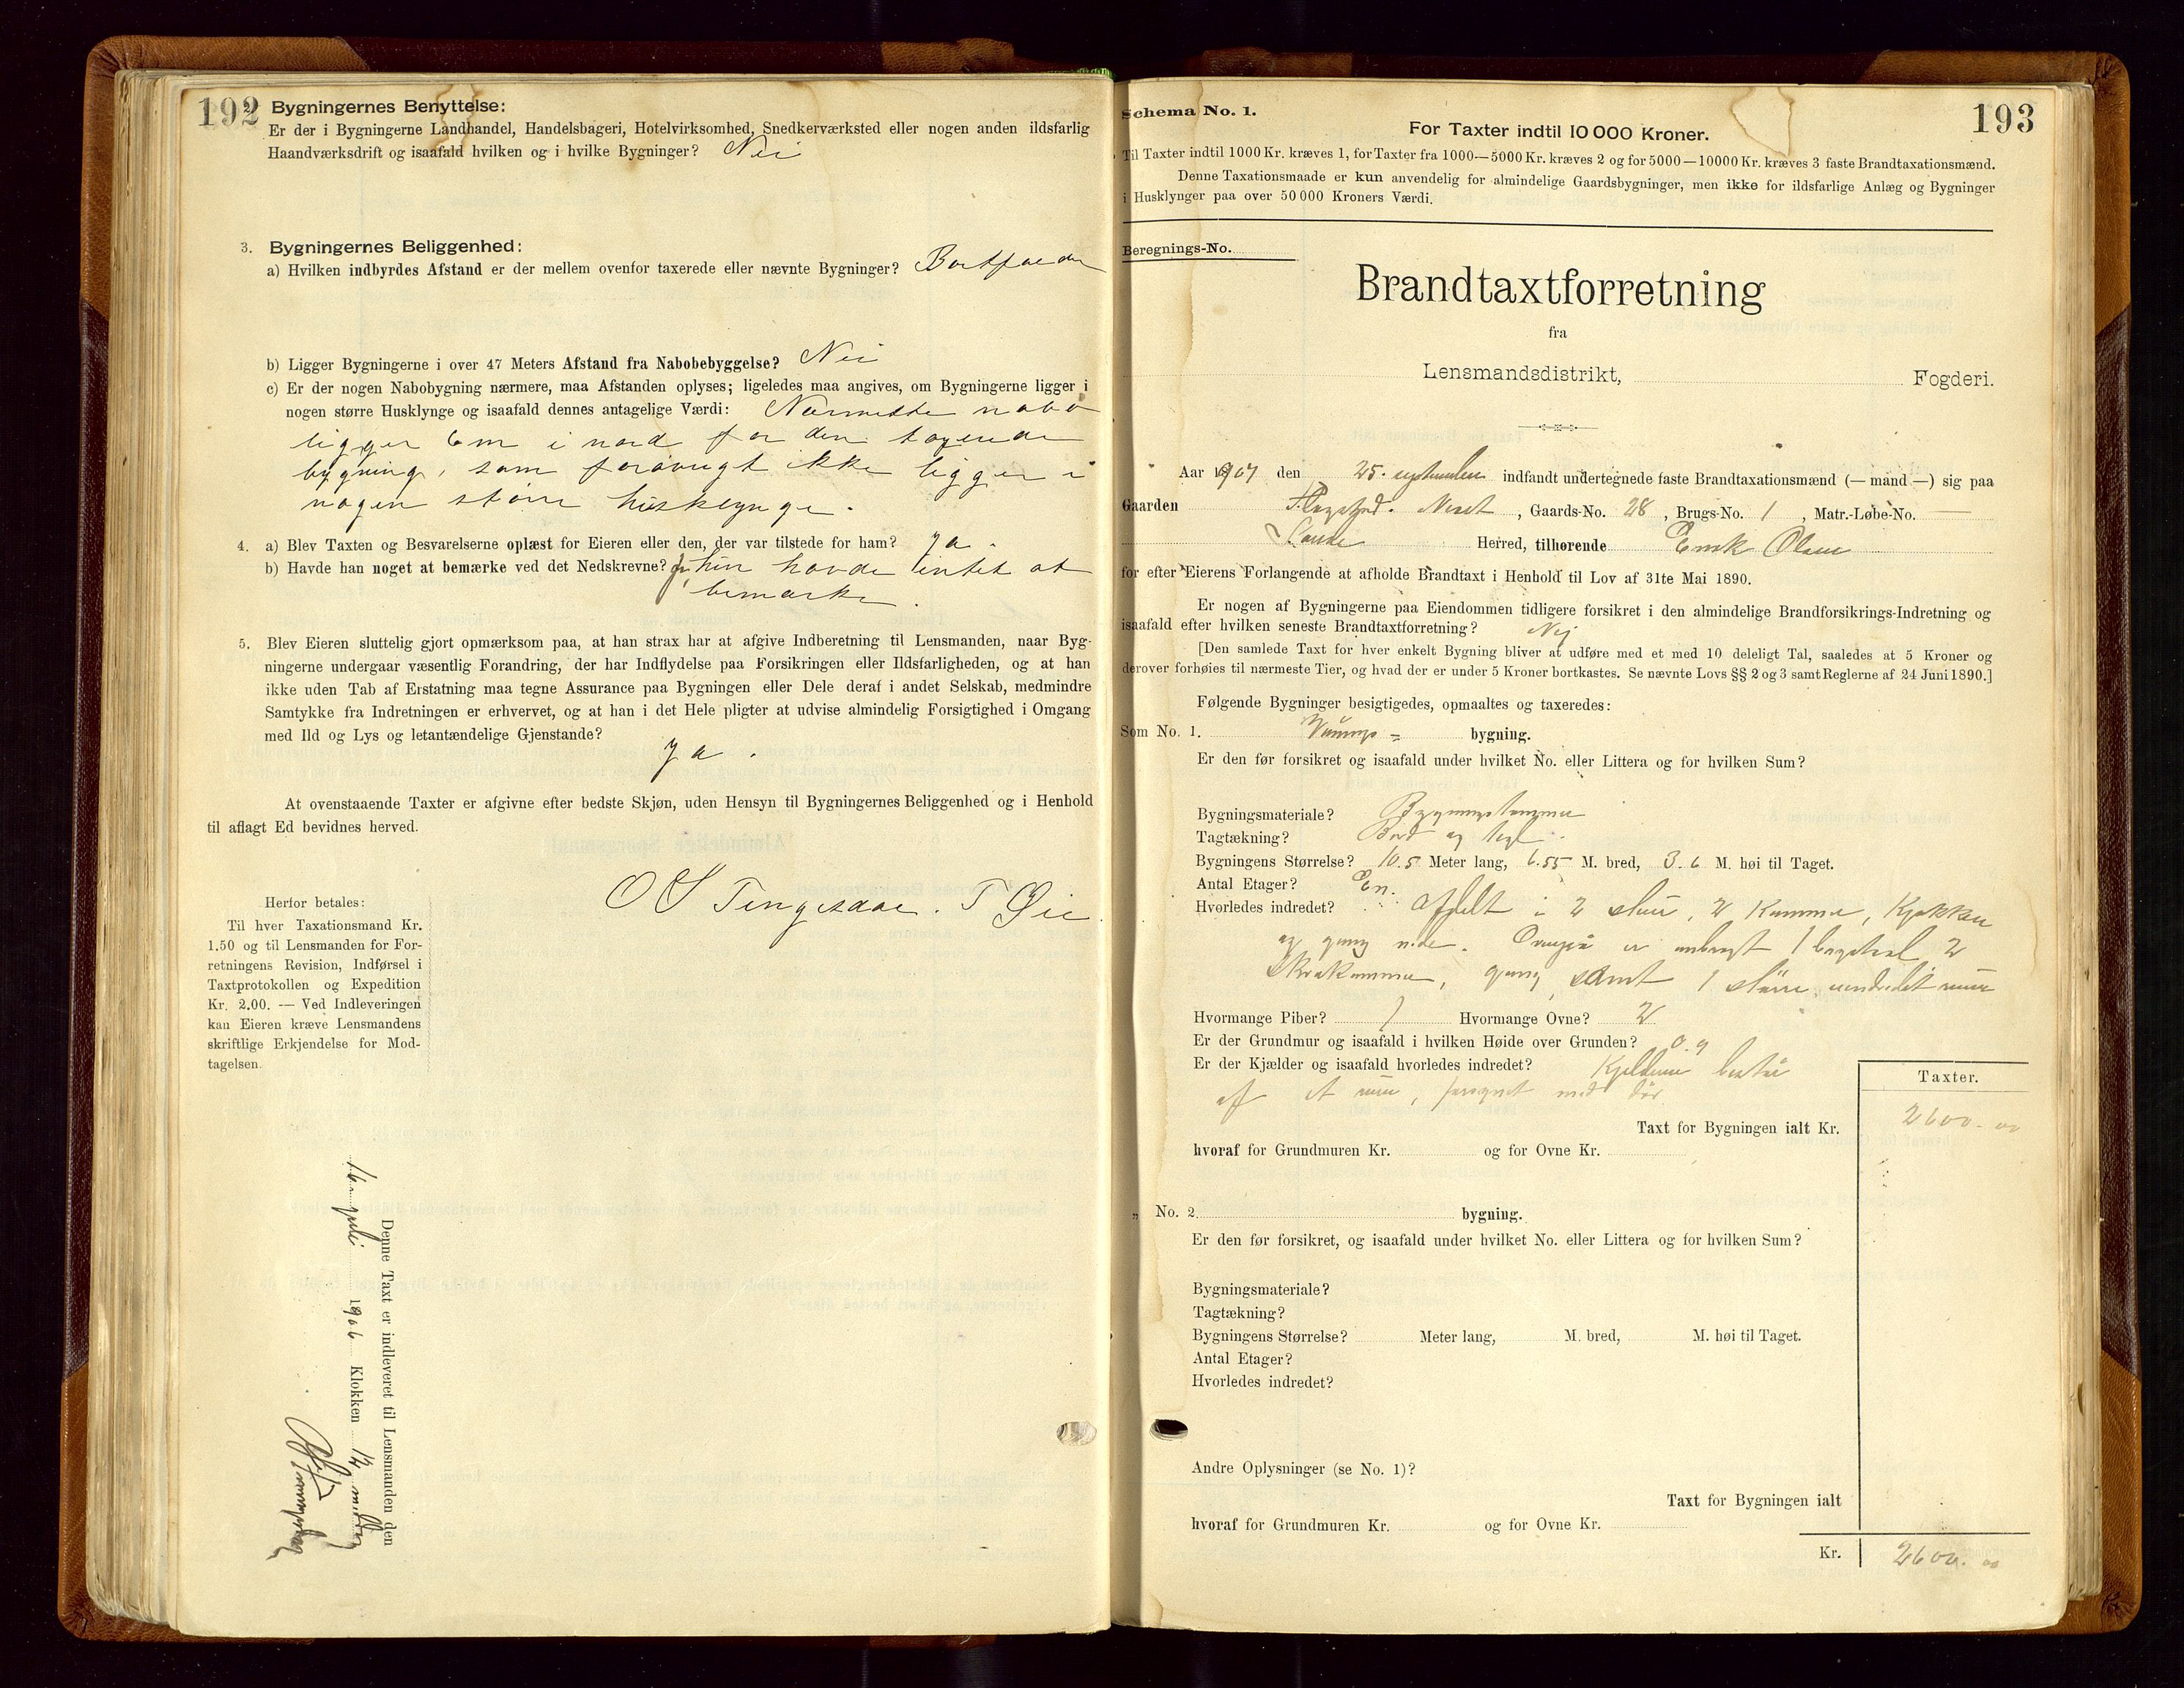 192 Bygningernes Benyttelse:
Er der i Bygningerne Landhandel, Handelsbageri, Hotelvirksomhed, Snedkerværksted eller nogen anden ildsfarlig
Haandværksdrift og isaafald hvilken og i hvilke Bygninger? Nei
3. Bygningernes Beliggenhed:
a) Hvilken indbyrdes Afstand er der mellem ovenfor taxerede eller nævnte Bygninger? Bortfalder
b) Ligger Bygningerne i over 47 Meters Afstand fra Nabobebyggelse? Nei
c) Er der nogen Nabobygning nærmere, maa Afstanden oplyses; ligeledes maa angives, om Bygningerne ligger i
nogen større Husklynge og isaafald dennes antagelige Værdi: Nærmeste nabo
ligger 6 m i nord for den
bygning, som forøvrigt ikke ligger i
nogen større husklynge.
4. a) Blev Taxten og Besvarelserne oplæst for Eieren eller den, der var tilstede for ham? ja.
b) Havde han noget at bemærke ved det Nedskrevne? hun havde intet at
bemærke.
5. Blev Eieren sluttelig gjort opmærksom paa, at han strax har at afgive Indberetning til Lensmanden, naar Byg-
ningerne undergaar væsentlig Forandring, der har Indflydelse paa Forsikringen eller Ildsfarligheden, og at han
ikke uden Tab af Erstatning maa tegne Assurance paa Bygningen eller Dele deraf i andet Selskab, medmindre
Samtykke fra Indretningen er erhvervet, og at han i det Hele pligter at udvise almindelig Forsigtighed i Omgang
med Ild og Lys og letantændelige Gjenstande?
ja.
At ovenstaaende Taxter er afgivne efter bedste Skjøn, uden Hensyn til Bygningernes Beliggenhed og i Henhold
til aflagt Ed bevidnes herved.
O S Tengesdal. T Øie
Herfor betales:
Til hver Taxationsmand Kr.
1.50 og til Lensmanden for For-
retningens Revision, Indførsel i
Taxtprotokollen og Expedition
Kr. 2.00. — Ved Indleveringen
kan Eieren kræve Lensmandens
skriftlige Erkjendelse for Mod-
tagelsen.
Denne Taxt er indleveret til Lensmanden den
16 juli 1906 Klokken 12 middag
Schema No. 1.
193
For Taxter indtil 10 000 Kroner.
Til Taxter indtil 1000 Kr. kræves 1, for Taxter fra 1000—5000 Kr. kræves 2 og for 5000—10000 Kr. kræves 3 faste Brandtaxationsmænd.
Denne Taxationsmaade er kun anvendelig for almindelige Gaardsbygninger, men ikke for ildsfarlige Anlæg og Bygninger
i Husklynger paa over 50 000 Kroners Værdi.
Beregnings-No.
Brandtaxtforretning
fra
Lensmandsdistrikt, Fogderi.
Aar 1907 den 25. september indfandt undertegnede faste Brandtaxationsmænd (— mand —) sig paa
Gaarden , Gaards-No. 28, Brugs-No. 1, Matr.-Løbe-No. —
Herred, tilhørende Olsen
for efter Eierens Forlangende at afholde Brandtaxt i Henhold til Lov af 31te Mai 1890.
Er nogen af Bygningerne paa Eiendommen tidligere forsikret i den almindelige Brandforsikrings-Indretning og
isaafald efter hvilken seneste Brandtaxtforretning? Nej
[Den samlede Taxt for hver enkelt Bygning bliver at udføre med et med 10 deleligt Tal, saaledes at 5 Kroner og
derover forhøies til nærmeste Tier, og hvad der er under 5 Kroner bortkastes. Se nævnte Lovs §§ 2 og 3 samt Reglerne af 24 Juni 1890.]
Følgende Bygninger besigtigedes, opmaaltes og taxeredes:
Som No. 1. Vånings= bygning.
Er den før forsikret og isaafald under hvilket No. eller Littera og for hvilken Sum?
Bygningsmateriale? Bygningstømmer
Tagtækning? Bord og tegl.
Bygningens Størrelse? 10.5 Meter lang, 6.55 M. bred, 3.6 M. høi til Taget.
Antal Etager? En.
Hvorledes indredet? Afdelt i 2 stuer, 2 Kammer, Kjøkken
og gang nede. Ovenpå er anbragt 1 2
Skråkammer, gang, samt 1 større uindredet rum
Hvormange Piber? 1 Hvormange Ovne? 2
Er der Grundmur og isaafald i hvilken Høide over Grunden? 0.9
Er der Kjælder og isaafald hvorledes indredet? Kjelderen består
af et rum, forsynet med dør
Taxter.
Taxt for Bygningen ialt Kr. 2600.00
hvoraf for Grundmuren Kr. og for Ovne Kr.
„ No. 2. bygning.
Er den før forsikret, og isaafald under hvilket No. eller Littera og for hvilken Sum?
Bygningsmateriale?
Tagtækning?
Bygningens Størrelse? Meter lang, M. bred, M. høi til Taget.
Antal Etager?
Hvorledes indredet?
Andre Oplysninger (se No. 1)?
Taxt for Bygningen ialt
hvoraf for Grundmuren Kr. og for Ovne Kr.
Kr. 2600.00